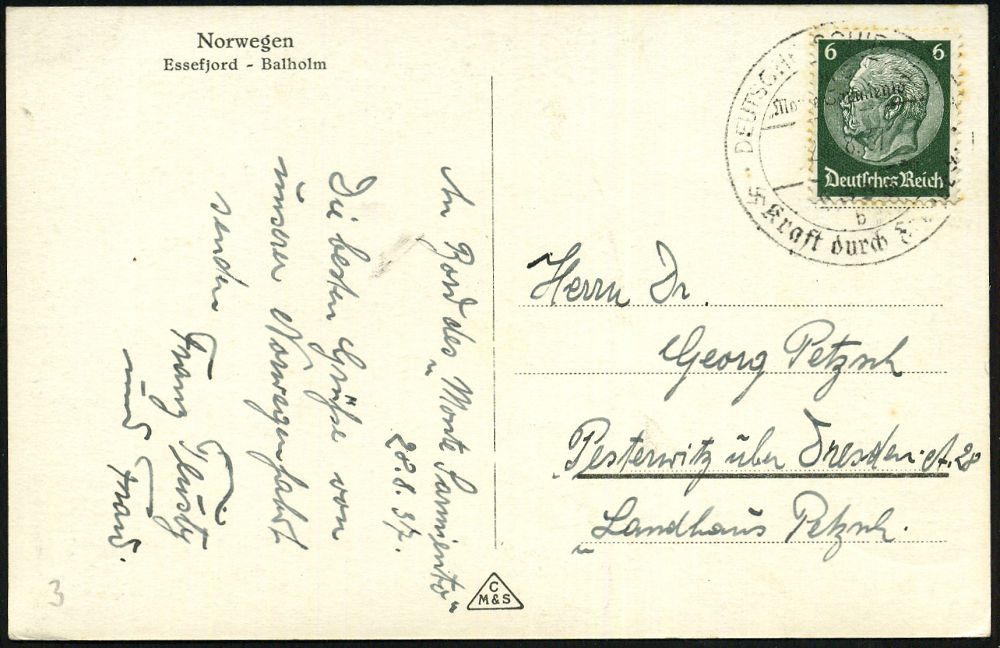 Norwegen
Essefjord - Balholm
An Bord des „Monte Sarmiento“
28.8.37.
Die besten Grüße von
unserer Norwegenfahrt
senden
Franz
und Frau.
Herrn Dr.
Georg Petzsch
Pesterwitz über Dresden-A. 28
„Landhaus Petzsch.
DEUTSCHE SCHIFF
b
Kraft durch
6 6
Deutsches Reich
C
M&S
3